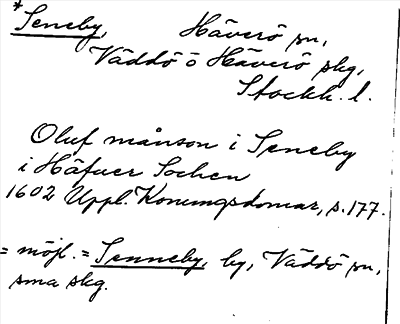 *Seneby, Häverö sn,
Väddö ö Häverö skg,
Stockh. l.
Oluf månson i Seneby
i Häfuer Sochen
1602 Uppl. Konungsdomar, s. 177.
= möjl. = Senneby, by, Väddö sn,
sma skg.